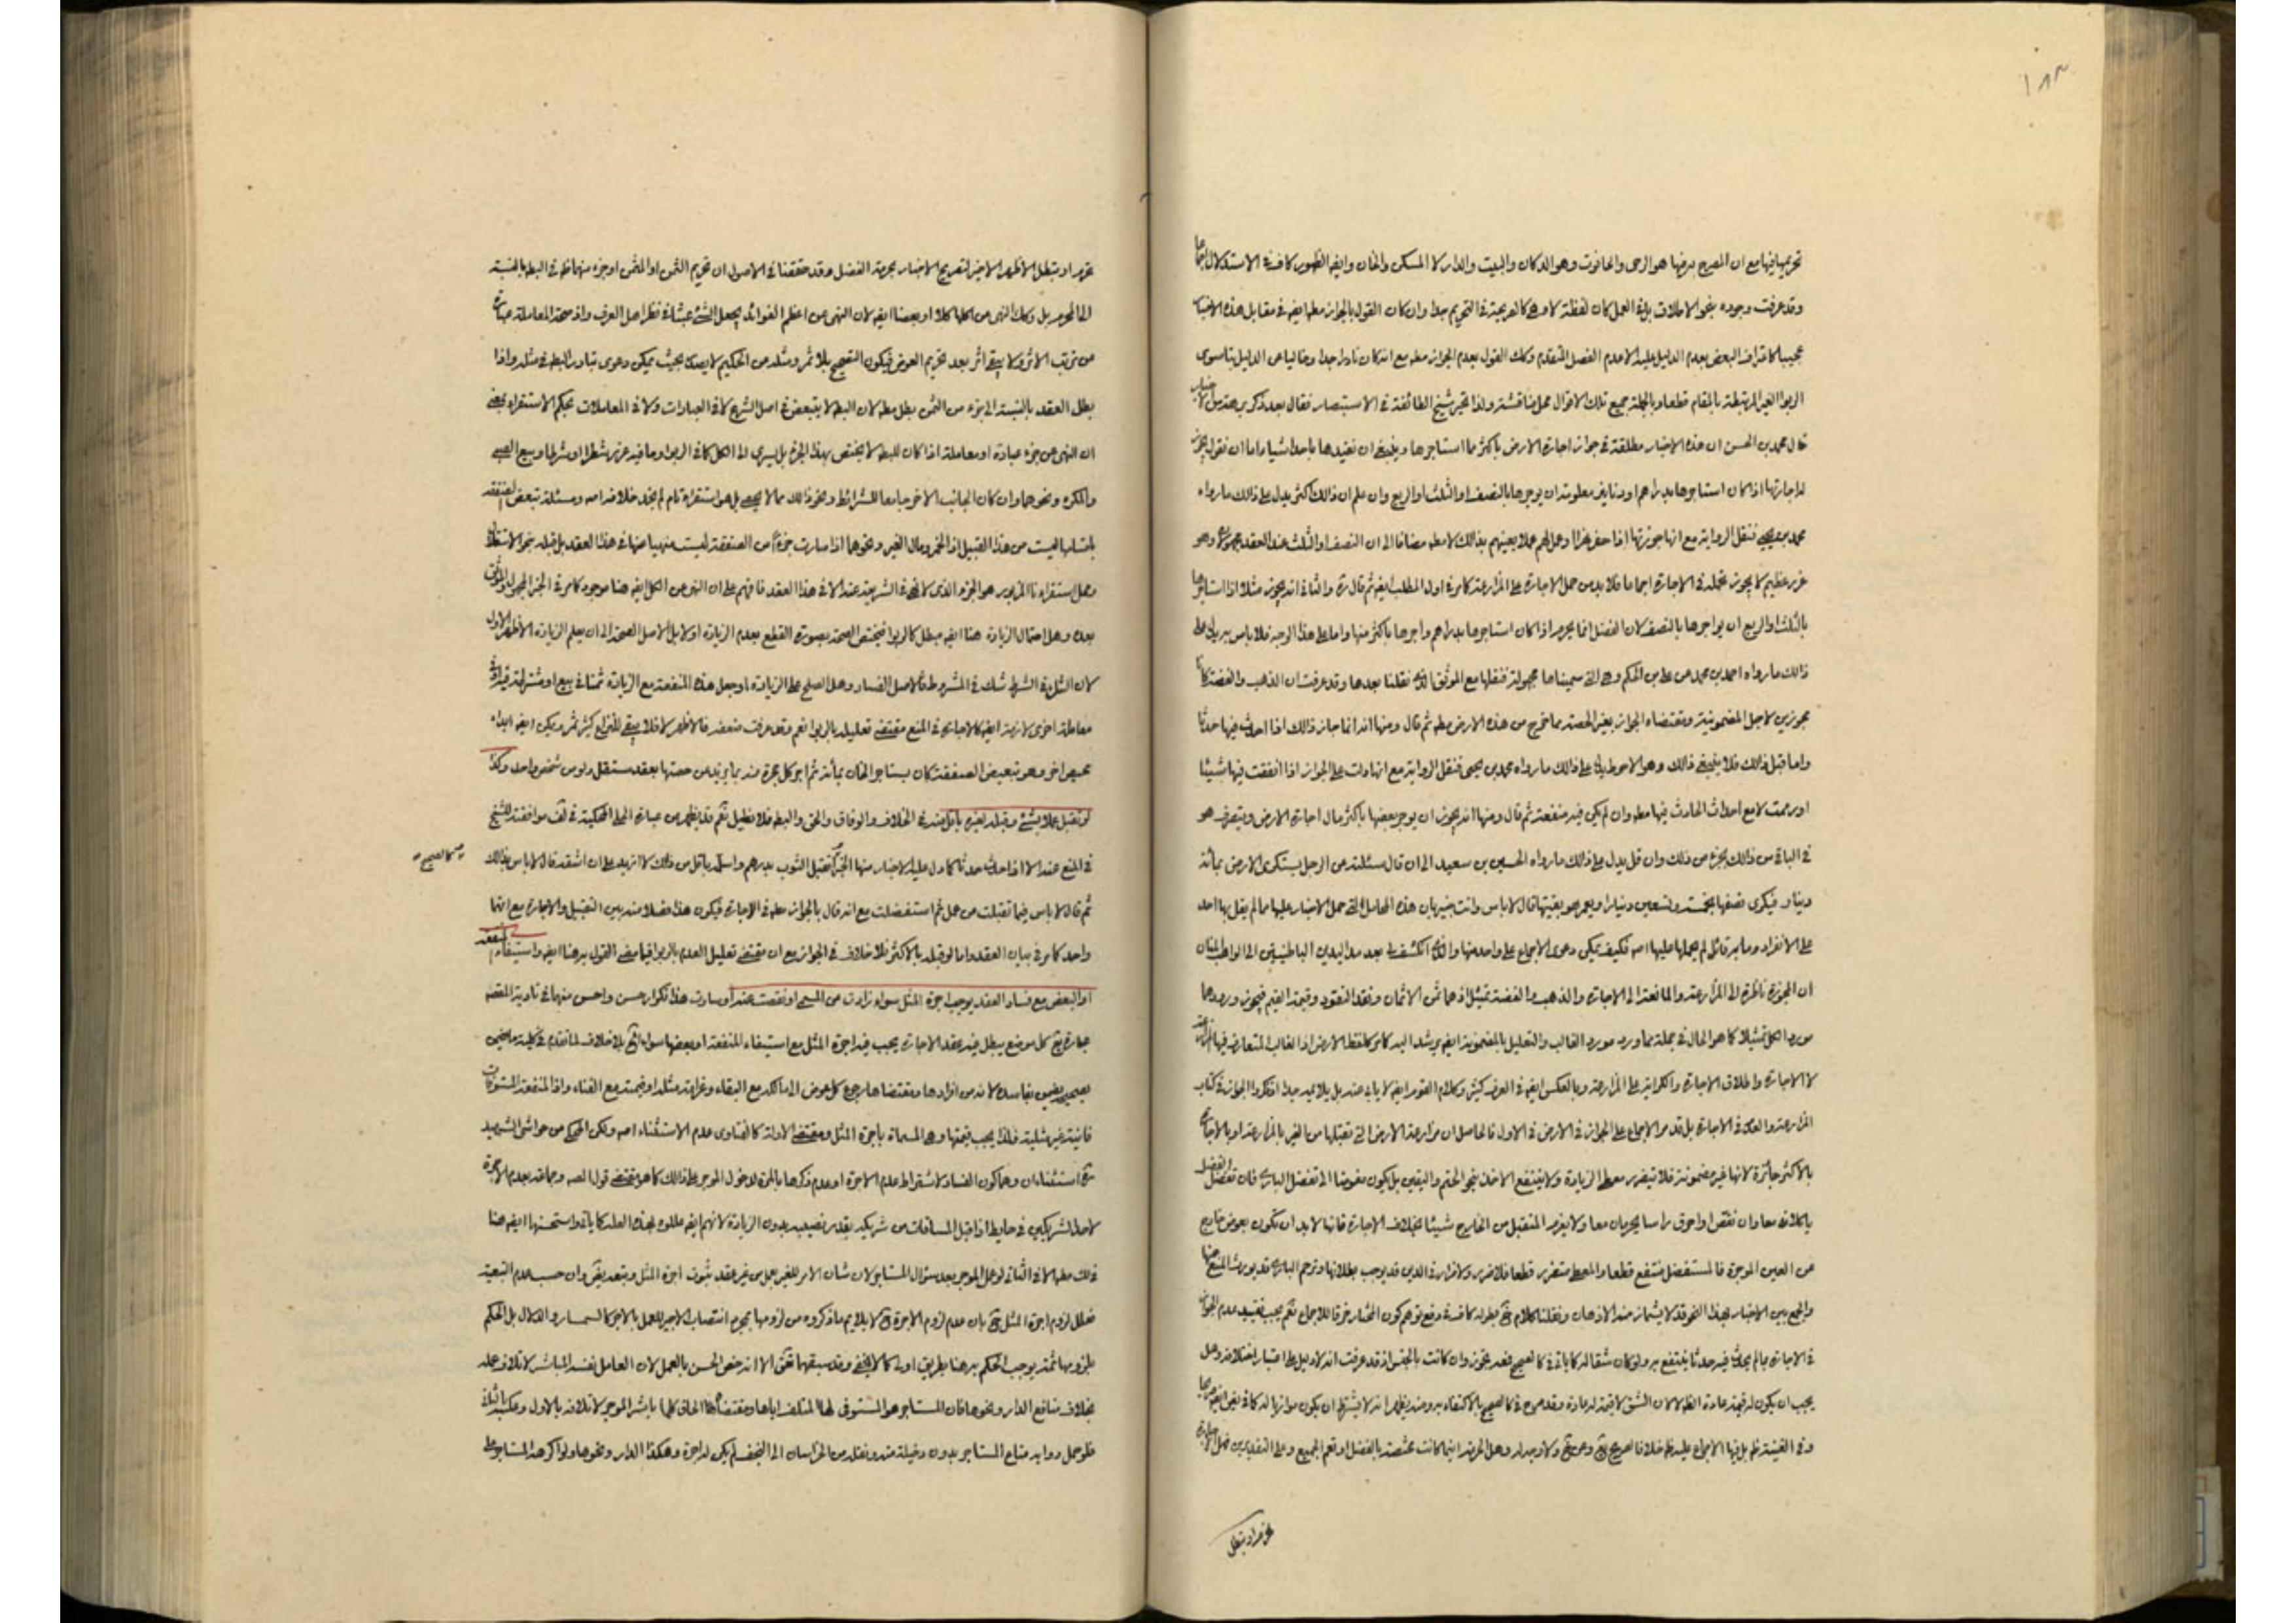 ١٨٣
تحريمها فيها مع ان المصرح به منها هو الرحى والحانوت وهو الدكان والبيت والدار لا المسكن والخان وايضا الظهور كاف في الاستدلال
وقد عرفت وجوده بنحو الاطلاق كان لفظة لا في التحريم جدا وان كان القول بالجواز مطلقا ايضا في مقابل هذه الاخبار
عجيبا البعض بعدم الدليل عليه لا عدم الفصل المتقدم وكك القول بعدم الجواز مطلقا مع انه كان نادرا جدا وخاليا عن الدليل سوى
الربوا الغير المرتبطة بالمقام قطعا وبالجملة جميع تلك الاقوال محل مناقشة ولذا تحير شيخ الطائفة في الاستبصار فقال بعد ذكر الاخبار
قال محمد بن الحسن ان هذه الاخبار مطلقة في جواز اجارة الارض باكثر مما استاجرها وينبغي ان نقيدها باحد اشياء اما ان نقول يجوز
له اجارتها اذا كان استاجرها بدراهم او دنانير معلومة ان يوجرها بالنصف او الثلث او الربع وان علم ان ذلك اكثر يدل على ذلك ما رواه
محمد بن يحيى فنقل الرواية مع انها جوزتها اذا حفر نهرا او عمل لهم عملا يعينهم بذلك لا مطلقا مضافا الى ان النصف او الثلث عند العقد مجهول وهو
غرر عظيم لا يجوز في الاجارة اجماعا فلا بد من حمل الاجارة على المزارعة كما مر في اول المطلب ايضا ثم قال والثاني انه يجوز مثلا اذا استاجرها
بالثلث او الربع ان يواجرها بالنصف لان الفضل انما يحرم اذا كان استاجرها بدراهم واجرها باكثر منها واما على هذا الوجه فلا باس به يدل على
ذلك ما رواه احمد بن محمد عن علي بن الحكم وهي التي سميناها مجهولة فنقلها مع الموثق الذي نقلنا بعدها وقد عرفت ان الذهب والفضة كانا
لاجل المضمونية ومقتضاه الجواز بغير الحصة مما تخرج من هذه الارض مطلقا ثم قال ومنها انه انما جاز ذلك اذا احدث فيها حدثا
واما قبل ذلك فلا ينبغي ذلك وهو الاحوط يدل على ذلك ما رواه محمد بن يحيى فنقل الرواية مع انها دلت على الجواز اذا انفقت فيها شيئا
او رممت لا مع احداث الحادث فيها مطلقا وان لم يكن فيه منفعة ثم قال ومنها انه يجوز ان يوجر بعضها باكثر مال اجارة الارض ويتصرف هو
في الباقي من ذلك بجزء من ذلك وان قل يدل على ذلك ما رواه الحسين بن سعيد الى ان قال سئلته عن الرجل يستكري الارض بمائة
دينار فيكري نصفها بخمسة وتسعين دينارا ويعمر هو بقيتها قال لا باس وانت خبير بان هذه المحامل التي حمل الاخبار عليها مما لم يقل بها احد
على الانفراد وما بهم قائل لم يحملها عليها اصه فكيف يمكن دعوى الاجماع على واحد منها والذي انكشف لي بعد
ان المجوزة ناظرة الى المزارعة والمانعة الى الاجارة والذهب والفضة تمثيل اذ هما ثمن الاثمان ونقد النقود وقيمة القيم فيجوز ورودهما
مورد الكل تمثيلا كما هو الحال في جملة مما ورد مورد الغالب والتعليل بالمضمونية ايضا يرشد اليه كما مر كلفظ الارض اذ الغالب المتعارف فيها المزارعة
لا الاجارة واطلاق الاجارة والكراية على المزارعة وبالعكس ايضا في العرف كثير وكلام القوم ايضا لا يابى عنه بل يلائمه جدا اذ ذكروا الجواز في كتاب
المزارعة والعدم في الاجارة بل قد مر الاجماع على الجواز في الارض في الاول فالحاصل ان مزارعة الارض التي تقبلها من الغير بالمزارعة او بالاجارة
بالاكثر جائزة لانها غير مضمونة فلا يتضرر معطي الزيادة ولا ينتفع الاخذ بنحو الحتم واليقين بل يكون مفوضا الى تفضل الباري فان تفضل
معا وان نقص او احرق راسا يحرمان معا ولا يغرم المتقبل من الخارج شيئا بخلاف الاجارة فانها لا بد ان تكون بعوض خارج
عن العين الموجرة فالمستفضل منتفع قطعا والمعطي متضرر قطعا فلا ضرر ولا ضرار في الدين قد يوجب بطلانها وترحم الباري قد يورث المنع عنها
والجمع بين الاخبار بهذا النحو قد لا يشمئز منه الاذهان ونقلنا كلام بطوله كاف في دفع توهم كون المختار خرقا للاجماع نعم يجب تقييد عدم الجواز
في الاجارة بما لم يحدث فيه حدثا ينتفع به ولو كان مثقاله كما ياتي في كالصحيح فقد يجوز وان كانت بالجنس اذ قد عرفت انه لا دليل على اعتبار اختلافه وهل
يجب ان يكون له قيمة عادة الظاهر لا لان الشق لا قيمة له عادة وقد صرح في كالصحيح بالاكتفاء به ومنه يظهر انه لا يشترط ان يكون موازيا له كما في بعض
وفي الغنية الاجماع عليه ولا وجه له وهل الحرمة انما كانت مختصة بالفضل او تعم الجميع وعلى التقديرين فهل الاجارة
تحرم او تبطل
تحرم او تبطل الاظهر الاخير لتصريح الاخبار بحرمة الفضل وقد حققنا في الاصول ان تحريم الثمن او المثمن او جزء منهما ظاهر في البطلان بالنسبة
الى المحرم بل وكك النهي من اكلها كلا او بعضا ايضا لان النهي عن اعظم الفوائد يجعل الشيء عبثا في نظر اهل العرف واذ صحة المعاملة عبارة
عن ترتب الاثر ولا يبقى اثر بعد تحريم العوض فيكون التصحيح بلا ثمر ومثله من الحكيم لا يصدر بحيث يمكن دعوى تبادر البطلان في مثله واذا
بطل العقد بالنسبة الى جزء من الثمن بطل مطلقا لان البطلان لا يتبعض في اصل الشرع لا في العبادات ولا في المعاملات بحكم الاستقراء بمعنى
ان النهي عن جزء عبادة او معاملة اذا كان للبطلان لا يختص بهذا الجزء بل يسري الى الكل كما في الربوا وما فيه غرر شطرا او شرطا وبيع الصبي
والمكره ونحوهما وان كان الجانب الاخر جامعا للشرائط ونحو ذلك مما لا يحصى بل هو استقراء تام لم نجد خلافه اصه ومسئلة تبعض الصفقة
ليست من هذا القبيل اذ الخمر ومال الغير ونحوهما اذا صارت جزءا من الصفقة ليست منهيا عنها في هذا العقد بل قبله بنحو الاستقلال
ومحل استقرائنا المزبور هو الجزء الذي لا نهي في الشريعة عنه الا في هذا العقد فافهم على ان النهي عن الكل ايضا هنا موجود كما مر في الخبر
بعده وهل احتمال الزيادة هنا ايضا مبطل كالربوا فيختص الصحة بصورة القطع بعدم الزيادة او لا بل الاصل الصحة الى ان يعلم الزيادة الاظهر الاول
لان الشك في الشرط شك في المشروط فالاصل الفساد وهل الصلح على الزيادة او جعل هذه المنفعة مع الزيادة ثمنا في بيع او مشترطة في
معاملة اخرى لازمة ايضا كالاجارة في المنع مقتضى تعليله بالربوا نعم وقد عرفت ضعفه فالاظهر لا فلا يبقى للنزاع كثير ثمر ويمكن ايضا ابداء
مخلص اخر وهو تبعيض الصفقة كان يستاجر الخان بمائة ثم اجر كل حجرة منه بما يزيد من حصتها بعقد مستقل ولو من شخص واحد وكذا
لو تقبل عملا بشيء وقبله لغيره باقل منه في الخلاف والوفاق والحق والبطلان فلا نطيل نعم قد يظهر من عبارة الحلي المحكية في لف موافقته للشيخ
في المنع عنه الا اذا احدث حدثا كما دل عليه الاخبار منها الخبر اتقبل الثوب بدرهم واسلمه باقل من ذلك لا ازيد على ان اشقه قال لا باس بذلك
كالصحيح
ثم قال لا باس فيما تقبلت من عمل ثم استفضلت مع انه قال بالجواز مطلقا في الاجارة فيكون هذا فصلا منه بين التقبيل والاجارة مع انهما
واحد كما مر في بيان العقد واما لو قبله بالاكثر فلا خلاف في الجواز مع ان مقتضى تعليل العدم بالربوا فيما مضى القول به هنا ايضا واستيفاء المنفعة
او البعض مع فساد العقد يوجب اجرة المثل سواء زادت عن المسمى او نقصت عنه او ساوت هذا تكرار حسن واحسن منهما في تادية المقصد
عبارة كل موضع يبطل فيه عقد الاجارة يجب فيه اجرة المثل مع استيفاء المنفعة او بعضها سواء بلا خلاف لما تقدم في كلية ما يضمن
بصحيحه يضمن بفاسده لانه من افرادها ومقتضاها رجوع كل عوض الى مالكه مع البقاء وغرامة مثله او قيمته مع الفناء واذ المنفعة المستوفاة
فانية غير مثلية فلذا يجب قيمتها وهي المسماة باجرة المثل ومقتضى الادلة كالفتاوى عدم الاستثناء اصه ولكن المحكي من حواشي الشهيد
استثناءان وهما كون الفساد لاشتراط عدم الاجرة او عدم ذكرها بالمرة لدخول الموجر على ذلك كما هو مقتضى قول المصه وجماعة بعدم الاجرة
لاحد الشريكين في حايط اذا قبل المساقات من شريكه بقدر نصيبه بدون الزيادة لانهم ايضا عللوه بهذه العلة كما ياتي واستحسنها ايضا هنا
في لك مطلقا لا في الثاني لو عمل الموجر بعد سؤال المستاجر لان شان الامر للغير بعمل من غير عقد ثبوت اجرة المثل وبتعد وان حسب عدم التبعية
فعلل لزوم اجرة المثل بان عدم لزوم الاجرة لا يلايم ما ذكروه من لزومها بمجرد انتصاب الاجير للعمل بالاجر كالسمسار والدلال بل الحكم
بلزومها ثمة يوجب الحكم به هنا بطريق اولى كما لا يخفى وقد سبقهما الا انه خص الحسن بالعمل لان العامل نفسه المباشر لاتلاف عمله
بخلاف منافع الدار ونحوها فان المستاجر هو المستوفي لها المتلف اياها ومقتضاه الحاق كلما باشر الموجر لاتلافه بالاول وعكسه بالثاني
فلو حمل دوابه متاع المستاجر بدون دخيلة منه ونقله من الخراسان الى النجف لم يكن له اجرة وهكذا الدار ونحوها ولو اكره المستاجر على